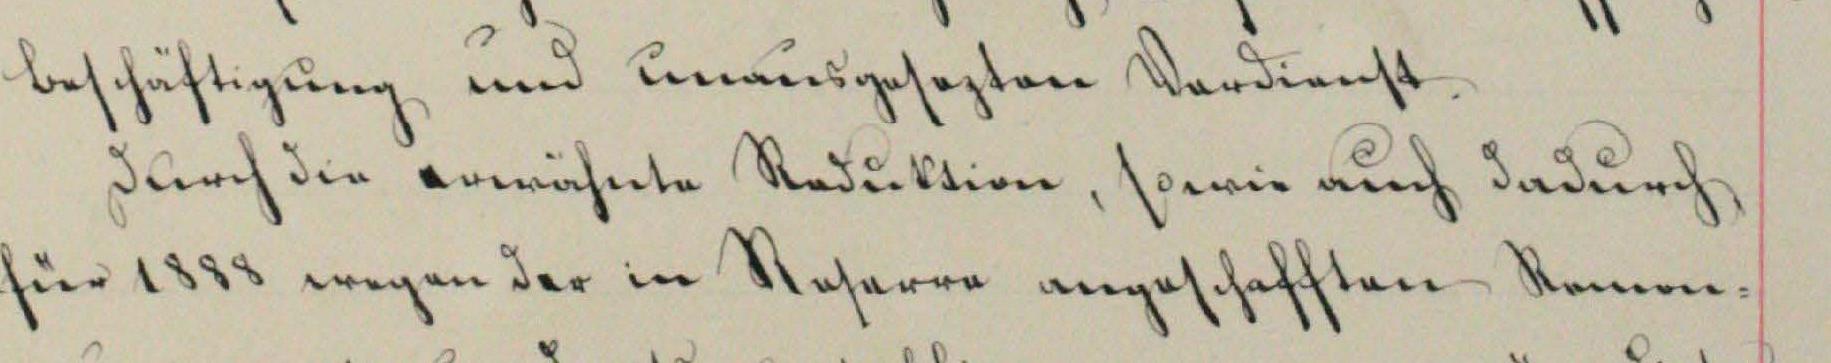 beschäftigung und unausgesezten Verdienst.
Durch die erwähnte Reduktion, sowie auch dadurch,
für 1888 wegen der in Reserve angeschafften Remon-